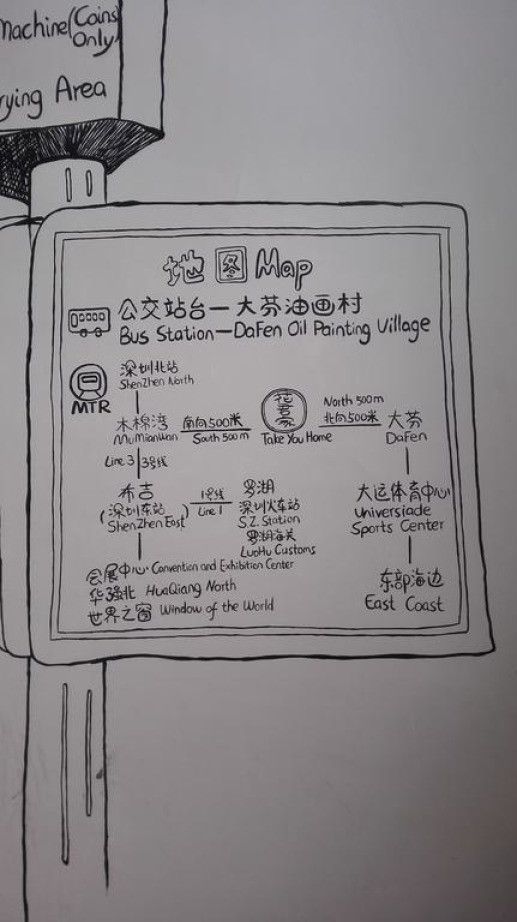 Machine(Coins
Only)
rying Area
地图 Map
公交站台—大芬油画村
Bus Station—DaFen Oil Painting Village
MTR
深圳北站
ShenZhen North
木棉湾
MuMianWan
南向500米
South 500m
花君豪
Take You Home
North 500m
北向500米
大芬
DaFen
Line 3 3号线
布吉
(深圳东站
ShenZhen East)
1号线
Line 1
罗湖
深圳火车站
S.Z. Station
罗湖海关
LuoHu Customs
大运体育中心
Universiade
Sports Center
会展中心 Convention and Exhibition Center
华强北 HuaQiang North
世界之窗 Window of the World
东部海边
East Coast